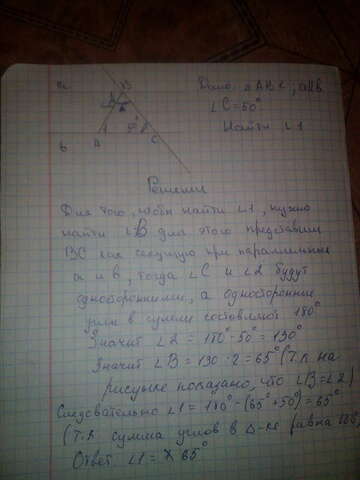 a B Дано: △ABC; a||b
∠C=50°
50°
Найти ∠1
b A 1 C
Решение
Для того, чтобы найти ∠1, нужно
найти ∠B для этого представим
BC как секущую при параллельных
a и b, тогда ∠C и ∠2 будут
односторонними, а односторонние
углы в сумме составляют 180°
Значит ∠2 = 180°-50° = 130°
Значит ∠B = 130:2 = 65° (т.к на
рисунке показано, что ∠B=∠2)
Следовательно ∠1 = 180°-(65°+50°)=65°
(Т.к сумма углов в △-ке равна 180°)
Ответ ∠1 = 65°